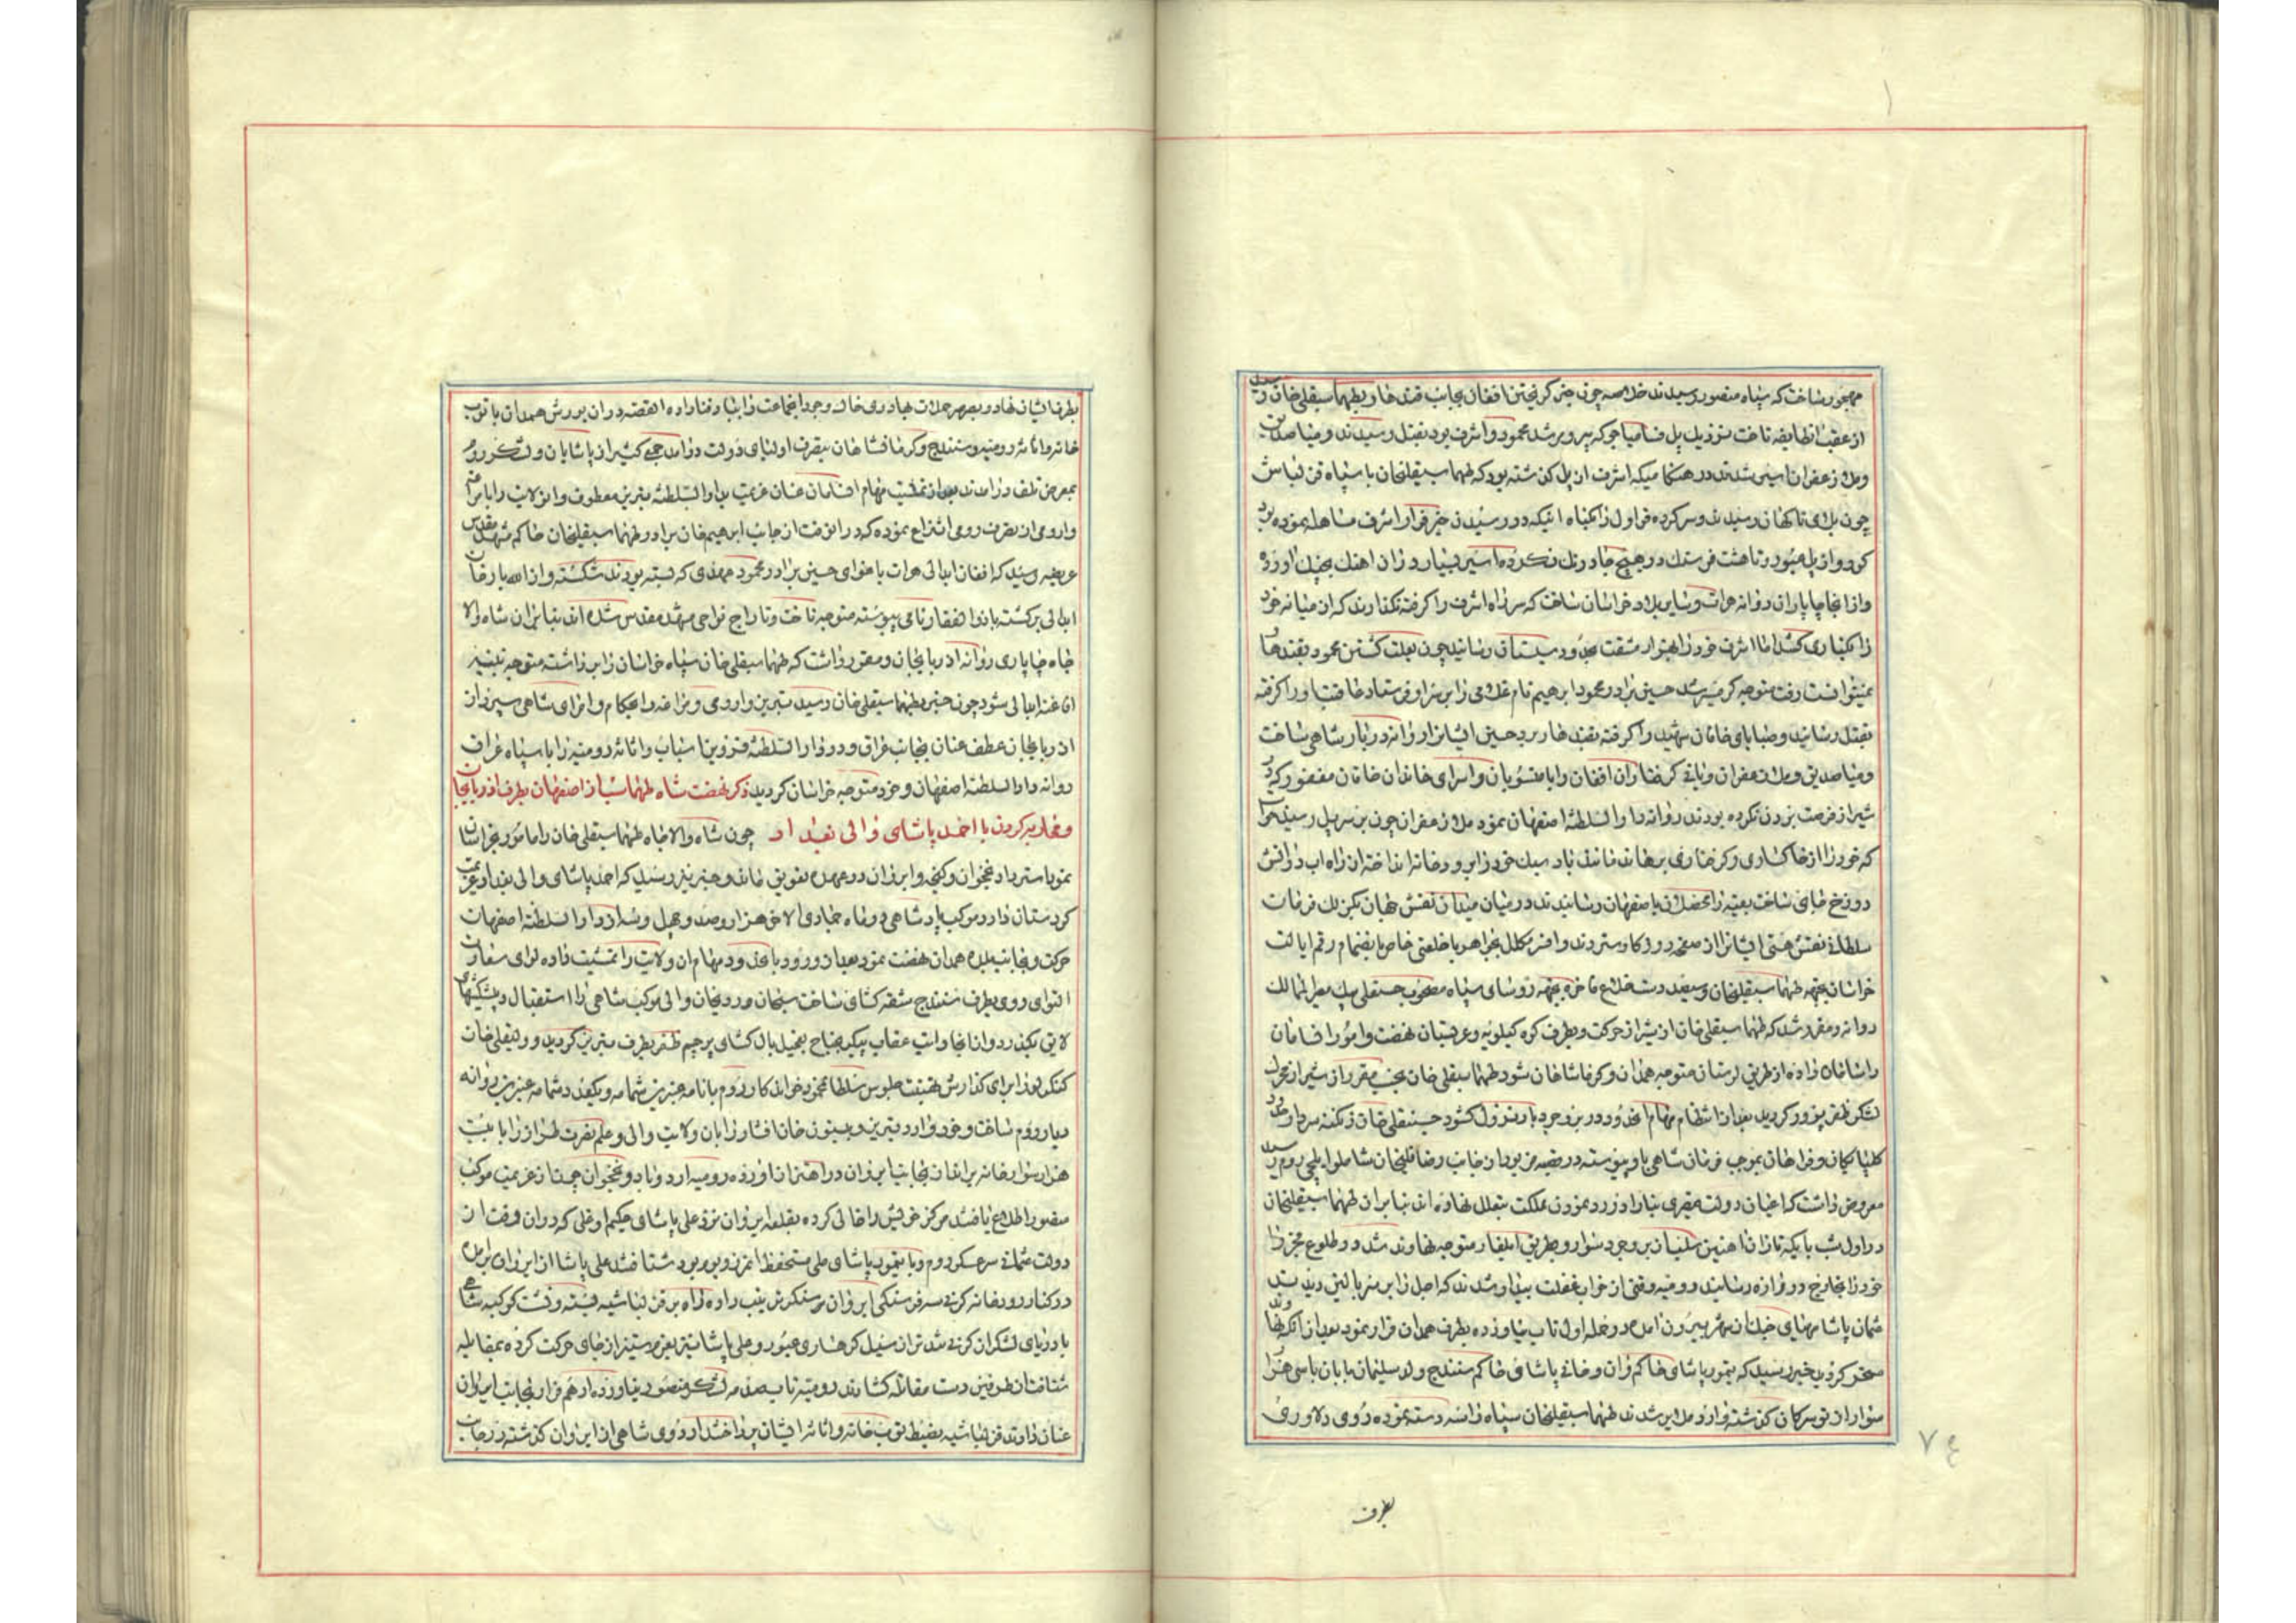 مهجور ساخت که سپاه منصور رسیدند خلاصه چون خبر گریختن افغان بجانب قندهار بطهماسبقلی خان رسید
از عقب انطایفه تاخت نزدیک پل فسا میاجو که پیر و مرشد محمود و اشرف بود بقتل رسیدند و میاصدیق
و ملا زعفران اسیر شدند در هنگامیکه اشرف از پل گذشته بود که طهماسبقلیخان با سپاه قزلباش
چون بلای ناگهان رسیدند و سرکرده قراول را بگناه اینکه در رسیدن خبر فرار اشرف مساهله نموده بود
کور و از پل عبور و تا هشت فرسنک در هیچ جا درنک نکرده اسیر بسیار و زنان اهنک بچنک اورده
و از انجا چاپاران روانه هرات و سایر بلاد خراسان ساخت که سر راه اشرف را گرفته نگذارند که از میانه خود
را بکناری کشد اما اشرف خود را بهزار مشقت بحدود سیستان رسانید چون بعلت کشتن محمود بقندهار
نمیتوانست رفت متوجه گرمسیر شد حسین برادر محمود ابرهیم نام غلامی را بر سر او فرستاد عاقبت او را گرفته
بقتل رسانید و صبایای خاقان شهید را گرفته بقندهار برد حسین ایشانرا روانه دربار شاهی ساخت
و میاصدیق و ملا زعفران و باقی گرفتاران افغان را با منسوبان و اسرای خاندان خاقان مغفور که در
شیراز فرصت بردن نکرده بودند روانه دارالسلطنه اصفهان نمود ملا زعفران چون بر سر پل رسید
که خود را از خاکساری و گرفتاری برهاند مانند باد سبک خود را بر رودخانه انداخته از راه اب در اتش
دوزخ جای ساخت بقیه را محصلان باصفهان رسانیدند در میان میدان نقش جهان بکزلک فرمان
سلطانی نقش هستی ایشانرا از صفحه روزگار ستردند و افسر مکلل بجواهر با خلعتی خاص بانضمام رقم ایالت
خراسان بجهه طهماسبقلیخان و سیصد دست خلاع فاخره بجهه روسای سپاه مصحوب حسنقلی بیک معیرالممالک
روانه و مقرر شد که طهماسبقلی خان از شیراز حرکت و بطرف کوه کیلویه و عربستان نهضت و امور انسامان
را سامان داده از طریق لرستان متوجه همدان و کرمانشاهان شود طهماسبقلی خان بحسب مقرر از شیراز محرک
لشکر ظفر پرور گردید بعد از انتظام مهام انحدود در بروجرد بار نزول گشود حسینقلی خان زنگنه سردار
کلپایگان و فراهان بموجب فرمان شاهی باو پیوسته در بقیه مزبور از جانب رضا قلیخان شاملو ایلچی روم رسید
معروض داشت که اعیان دولت قیصری بنا را در رد نمودن مملکت بتعلل نهاده اند بنابران طهماسبقلیخان
در اول شب با یکه تازان اهنین سلب از بروجرد سوار و بطریق ایلغار متوجه نهاوند شد و در طلوع فجر را
خود را بخارج دروازه رسانید رومیه وقتی از خواب غفلت بیدار شدند که اجل را بر سر بالین دیدند
عثمان پاشا مهیای جدال از شهر بیرون امده در حمله اول تاب نیاورده بطرف همدان فرار نمود بعد از انکه نهاوند
مسخر گردید خبر رسید که تیمور پاشای حاکم وان و خانی پاشای حاکم سنندج ولد سلیمان بابان با سی هزار
سوار از توسرکان گذشته وارد ملایر شدند طهماسبقلیخان سپاه را سه دسته نموده روی دلاوری
۷۴
بطرف
بطرف ایشان نهاد و بضرب حملات بهادری خاک وجود انجماعت را بباد فنا داده القصه در ان یورش همدان با توپ
خانه و اثاثه رومیه و سنندج و کرمانشاهان بتصرف اولیای دولت درامد جمعی کثیر از پاشایان و لشکر روم
بمعرض تلف درامدند بعد از تمشیت مهام انسامان عنان عزیمت بدارالسلطنه تبریز معطوف و انولایت را با مراغه
و ارومی از تصرف رومی انتزاع نموده که در انوقت از جانب ابرهیم خان برادر طهماسبقلیخان حاکم مشهد مقدس
عریضه رسید که افغان ابدالی هرات باغوای حسین برادر محمود عهدی که بسته بودند شکسته و از الله یار خان
ابدالی برگشته با ذوالفقار نامی پیوسته متوجه تاخت و تاراج نواحی مشهد مقدس شده اند بنابران شاه والا
جاه چاپاری روانه اذربایجان و مقرر داشت که طهماسبقلی خان سپاه خراسان را برداشته متوجه تنبیه
افاغنه ابدالی شود چون خبر بطهماسبقلی خان رسید تبریز و ارومی و مراغه را بحکام و امرای شاهی سپرد از
اذربایجان عطف عنان بجانب عراق و در دارالسلطنه قزوین اسباب و اثاثه رومیه را با سپاه عراق
روانه دارالسلطنه اصفهان و خود متوجه خراسان گردید ذکر نهضت شاه طهماسب از اصفهان بطرف اذربایجان
و محاربه کردن با احمد پاشای والی بغداد چون شاه والا جاه طهماسبقلی خان را مامور بخراسان
نمود استرداد نخجوان و گنجه و ایروان در عهده تعویق ماند و خبر نیز رسید که احمد پاشای والی بغداد عزیمت
کردستان دارد موکب پادشاهی در ماه جمادی الاخر هزار و صد و چهل و سه از دارالسلطنه اصفهان
حرکت و بجانب بلده همدان نهضت نمود بعد از ورود بانحدود مهام ان ولایت را تمشیت داده لوای سعادت
التوای روی بطرف سنندج شقه گشای ساخت سبحان وردیخان والی موکب شاهی را استقبال و پیشکشهای
لایق بگذرد و از انجا رایت عقاب پیکر بجناح تعجیل بال گشای پرچم ظفر بطرف تبریز گردید و ولیقلی خان
کنکرلو را برای گذارش تهنیت جلوس سلطان محمود خواندکار روم با نامه عنبرین شمامه و یکعدد شمامه عنبرین روانه
دیار روم ساخت و خود وارد تبریز و بیستون خان افشار را بان ولایت والی و علم نصرت طراز را با بیست
هزار سوار خانه بر انداز بجانب ایروان در اهتزاز اورده رومیه اردوباد و نخجوان چون از عزیمت موکب
منصور اطلاع یافتند مرکز خویش را خالی کرده بقلعه ایروان نزد علی پاشای حکیم اوغلی که در ان وقت از
دولت عثمانی سرعسکر روم و با تیمور پاشای ملی مستحفظ انمرز و بوم بود شتافتند علی پاشا از ایروان برامده
در کنار رودخانه کرنی سه فرسنگی ایروان سنکر ترتیب داده راه بر قزلباشیه بسته و فست کوکبه شاهی
با دریای لشکر از کرنی شد تران سیل کوهساری عبور و علی پاشا نیز بعزم ستیز از جای حرکت کرده بمقابله
شتافت از طرفین دست مقاتله گشادند رومیه تاب صدمه لشکر منصور نیاورده از هم فرار بجانب ایروان
عنان دادند قزلباشیه بضبط توپخانه و اثاثه ایشان پرداختند اردوی شاهی از ایروان گذشته در جانب